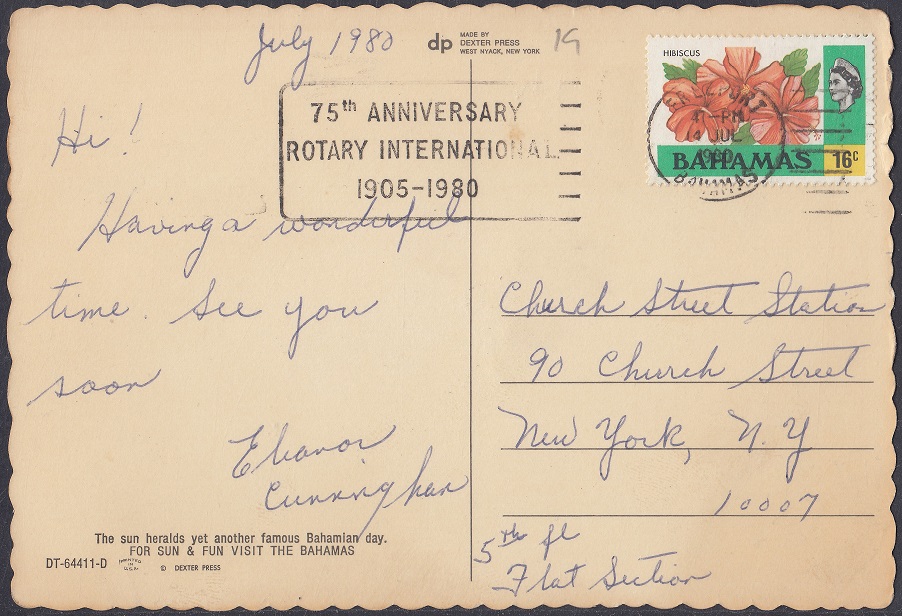 July 1980
dp
MADE BY
DEXTER PRESS
WEST NYACK, NEW YORK
19
HIBISCUS
BAHAMAS 16c
FREEPORT
4-PM
14 JUL
1980
BAHAMAS
75th ANNIVERSARY
ROTARY INTERNATIONAL
1905-1980
Hi!
Having a wonderful
time. See you
soon
Eleanor
Cunningham
Church Street Station
90 Church Street
New York, N.Y
10007
5th fl
Flat Section
The sun heralds yet another famous Bahamian day.
FOR SUN & FUN VISIT THE BAHAMAS
DT-64411-D PRINTED IN U.S.A. © DEXTER PRESS